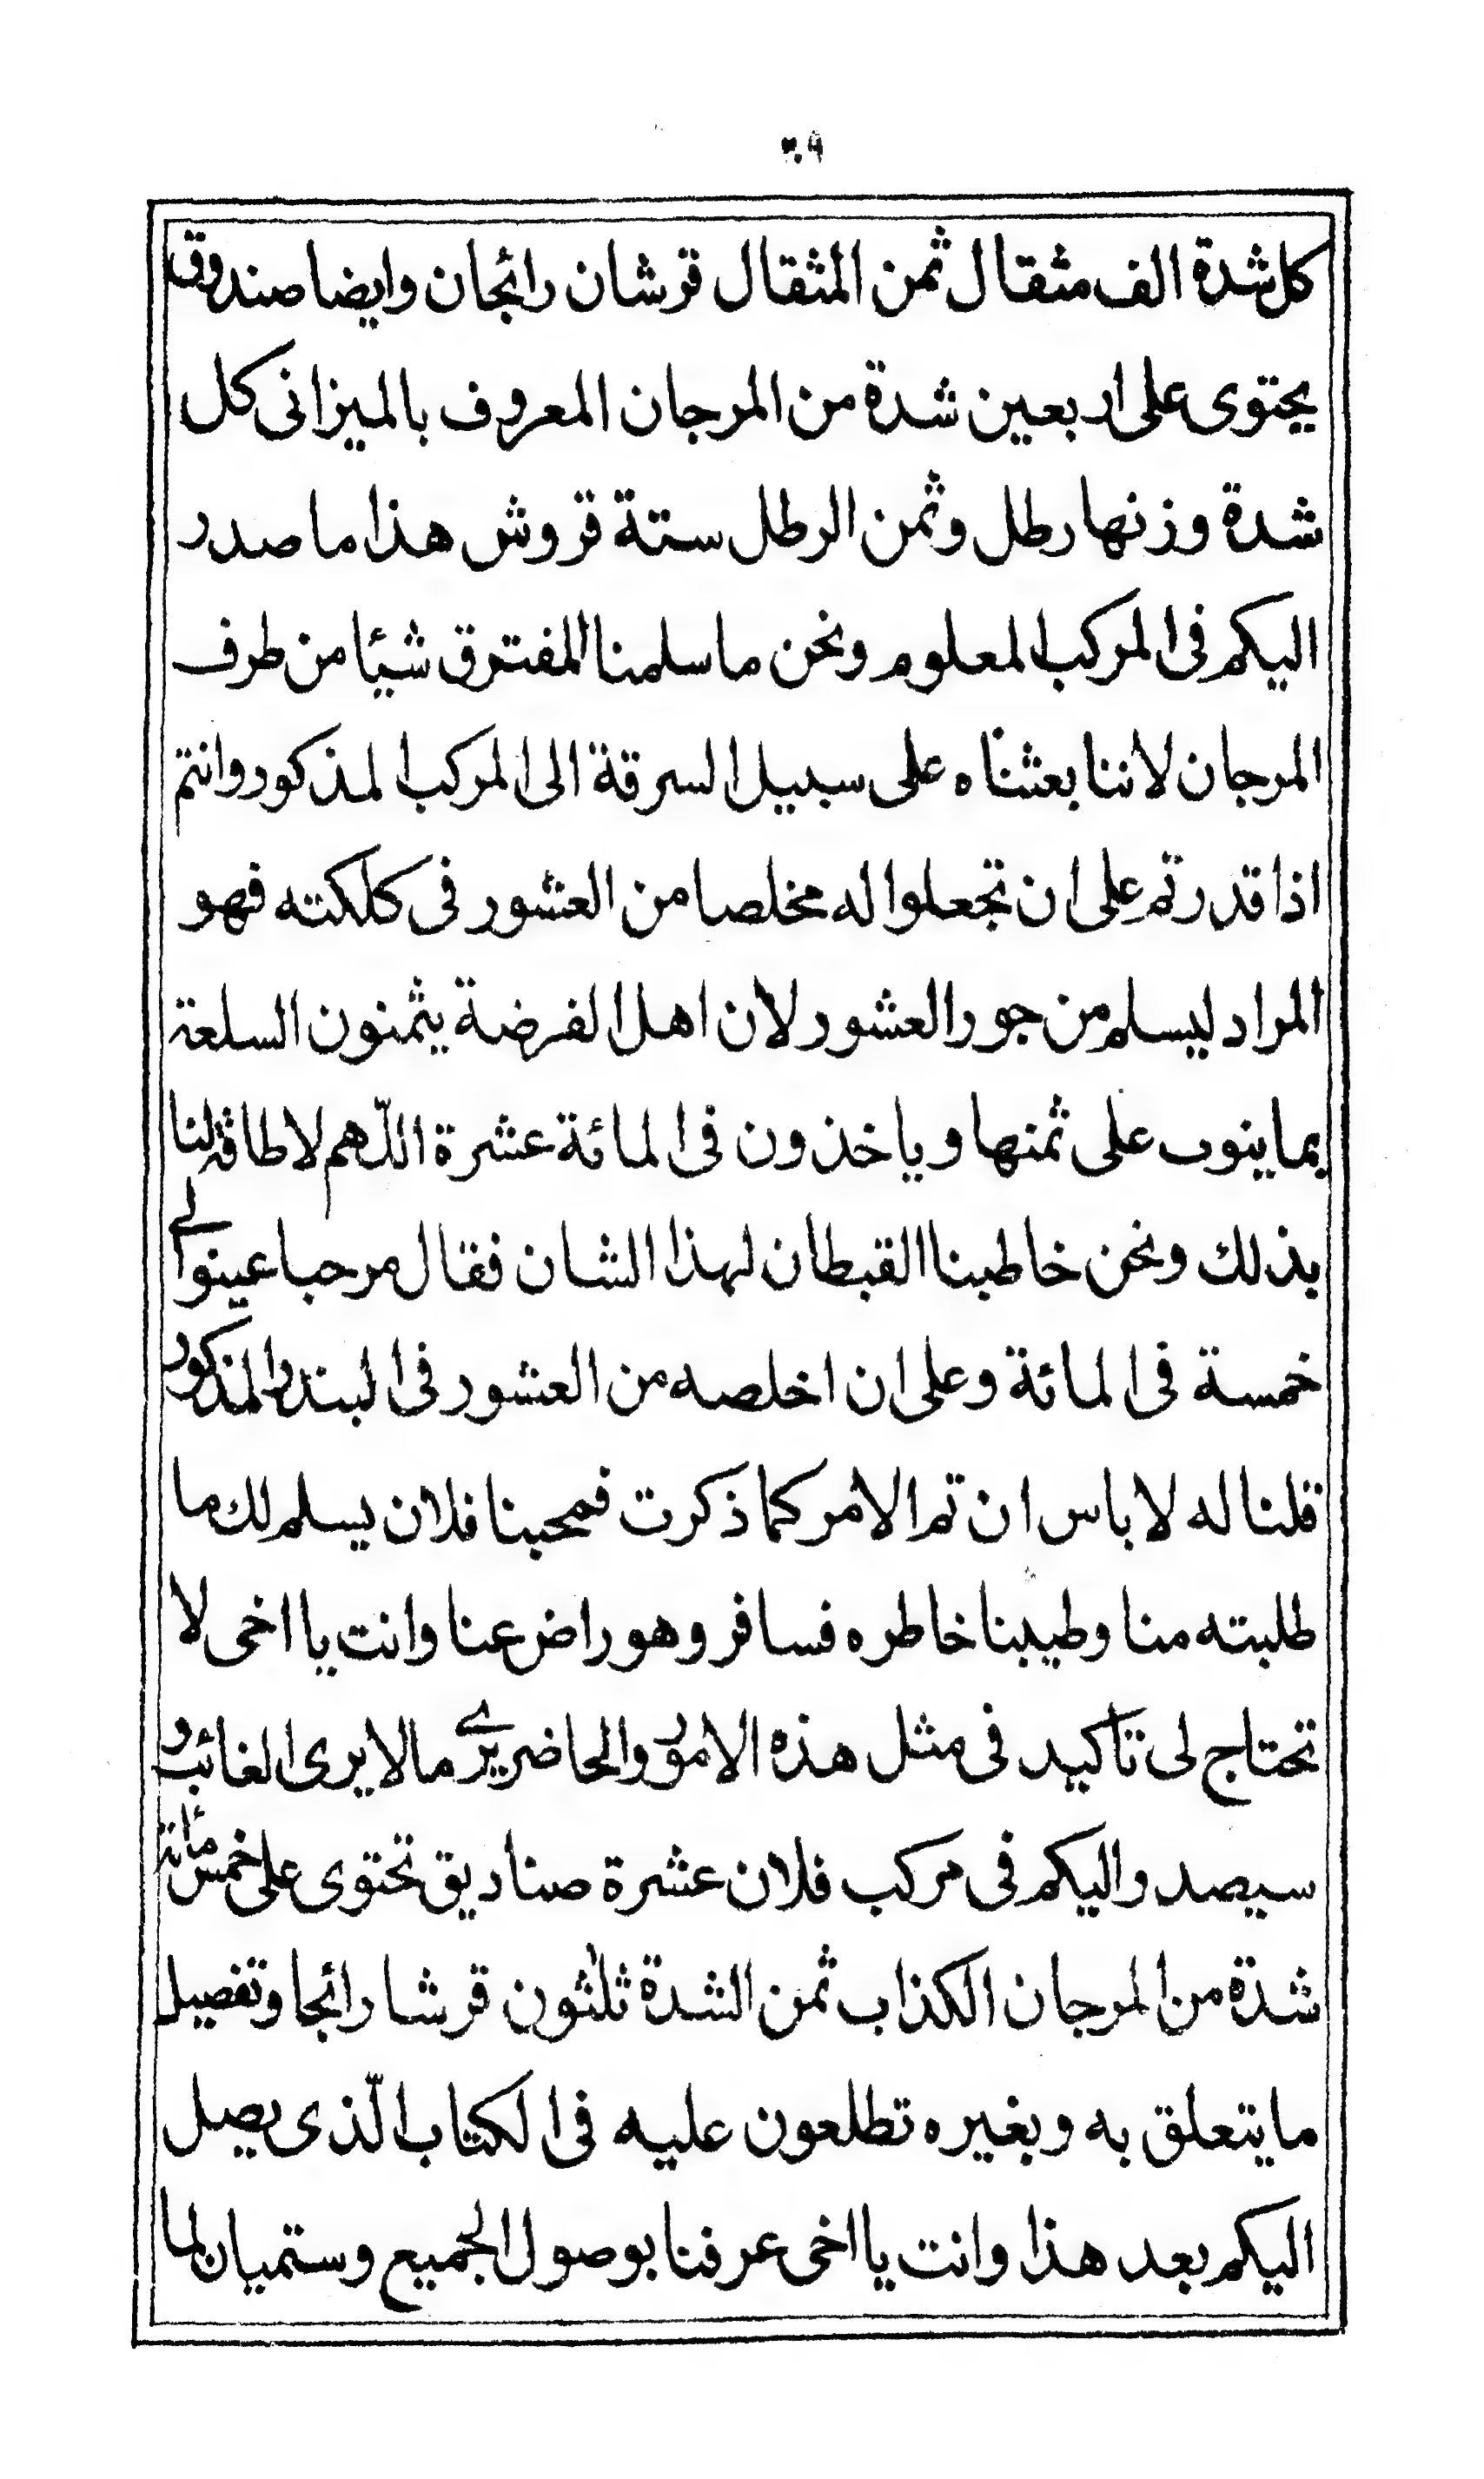 ٣٠٩
كل شدة الف مثقال ثمن المثقال قرشان رائجان وايضا صندوق
يحتوى على اربعين شدة من المرجان المعروف بالميزانى كل
شدة وزنها رطل وثمن الرطل ستة قروش هذا ما صدر
اليكم فى المركب المعلوم ونحن ما سلمنا المفترق شيئا من طرف
المرجان لاننا بعثناه على سبيل السرقة الى المركب المذكور وانتم
اذا قدرتم على ان تجعلوا له مخلصا من العشور فى كلكته فهو
المراد ليسلم من جور العشور لان اهل الفرضة يثمنون السلعة
بما ينوب على ثمنها وياخذون فى المائة عشرة اللّهم لا طاقة لنا
بذلك ونحن خاطبنا القبطان لهذا الشان فقال مرحبا عينوا لى
خمسة فى المائة وعلى ان اخلصه من العشور فى البندر المذكور
قلنا له لا باس ان تم الامر كما ذكرت فمحبنا فلان يسلم لك ما
طلبته منا وطيبنا خاطره فسافر وهو راض عنا وانت يا اخى لا
تحتاج لى تاكيد فى مثل هذه الامور والحاضر يرى ما لا يرى الغائب و
سيصدر اليكم فى مركب فلان عشرة صناديق تحتوى على خمس مائة
شدة من المرجان الكذاب ثمن الشدة ثلثون قرشا رائجا وتفصيل
ما يتعلق به وبغيره تطلعون عليه فى الكتاب الّذى يصل
اليكم بعد هذا وانت يا اخى عرفنا بوصول الجميع وستميان لما